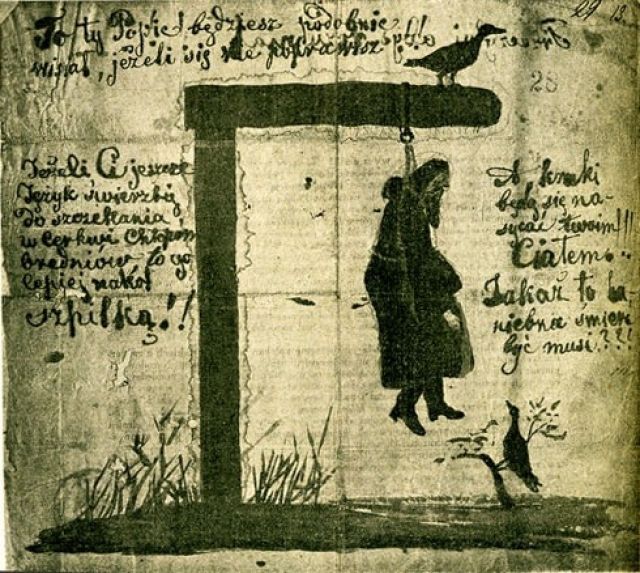 To ty Popie! będziesz podobnie
wisiał, jeżeli się nie poprawisz
29 13.
28
Jeżeli Ci jeszcze
Język świerzbij
do szczekania
w Cerkwi Chłopom
bredniów, to go
lepiej nakol
szpilką!!
A kruki
będą się na-
sycać twoim!!!
Ciałem..
Jakaż to ha-
niebna śmierć
być musi???